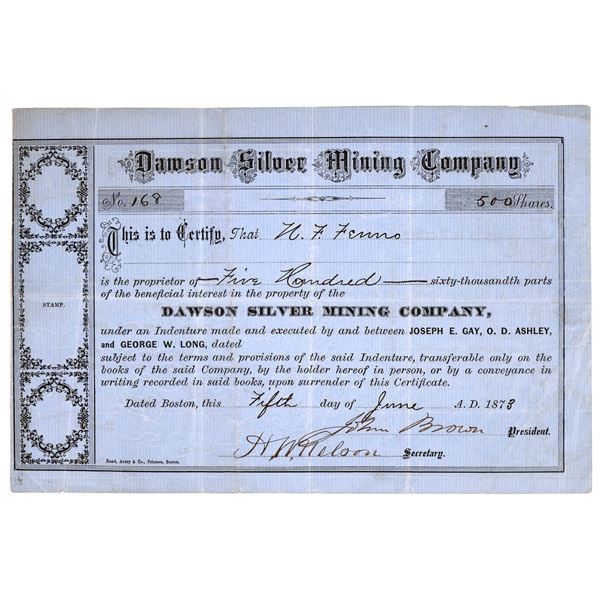 Dawson Silver Mining Company
No. 168 500 Shares.
This is to Certify, That N. F. Fenno
is the proprietor of Five Hundred sixty-thousandth parts
of the beneficial interest in the property of the
DAWSON SILVER MINING COMPANY,
under an Indenture made and executed by and between JOSEPH E. GAY, O. D. ASHLEY,
and GEORGE W. LONG, dated
subject to the terms and provisions of the said Indenture, transferable only on the
books of the said Company, by the holder hereof in person, or by a conveyance in
writing recorded in said books, upon surrender of this Certificate.
STAMP.
Dated Boston, this Fifth day of June A. D. 1873
John Brown President.
H. W. Nelson Secretary.
Rand, Avery & Co., Printers, Boston.